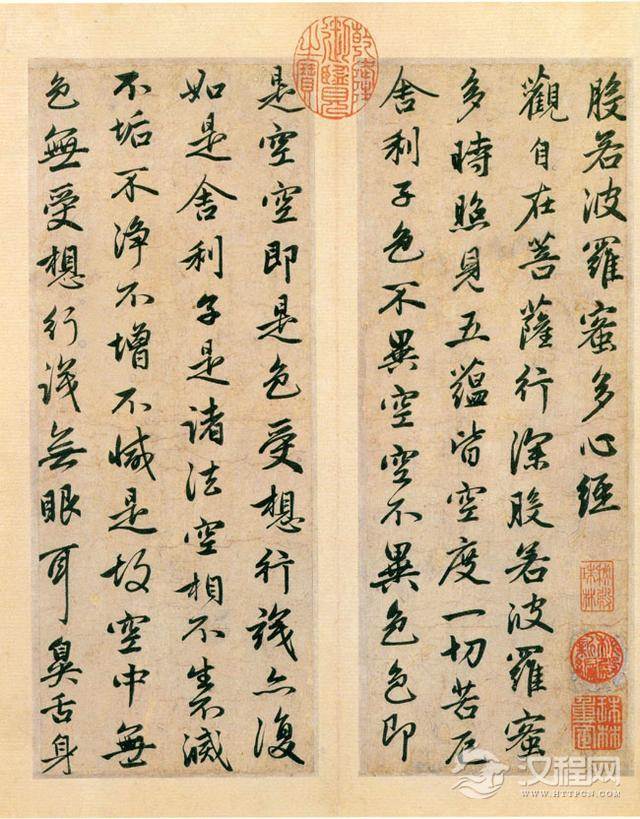 乾隆御覽之寶
般若波羅蜜多心經
觀自在菩薩行深般若波羅蜜
多時照見五蘊皆空度一切苦厄
舍利子色不異空空不異色色即
是空空即是色受想行識亦復
如是舍利子是諸法空相不生不滅
不垢不淨不增不減是故空中無
色無受想行識無眼耳鼻舌身
秘殿珠林
秘殿新編
珠林重定
汉程网
WWW.HTTPCN.COM